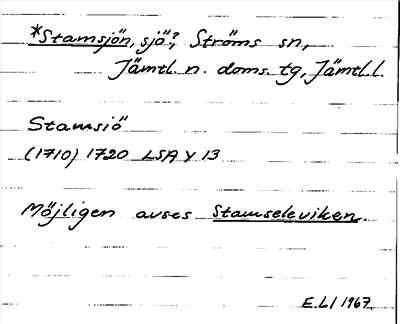 *Stamsjön, sjö?, Ströms sn,
Jämtl. n. doms. tg, Jämtl.l.
Stamsiö
(1710) 1720 LSA Y 13
Möjligen avses Stamseleviken.
E.LI 1967